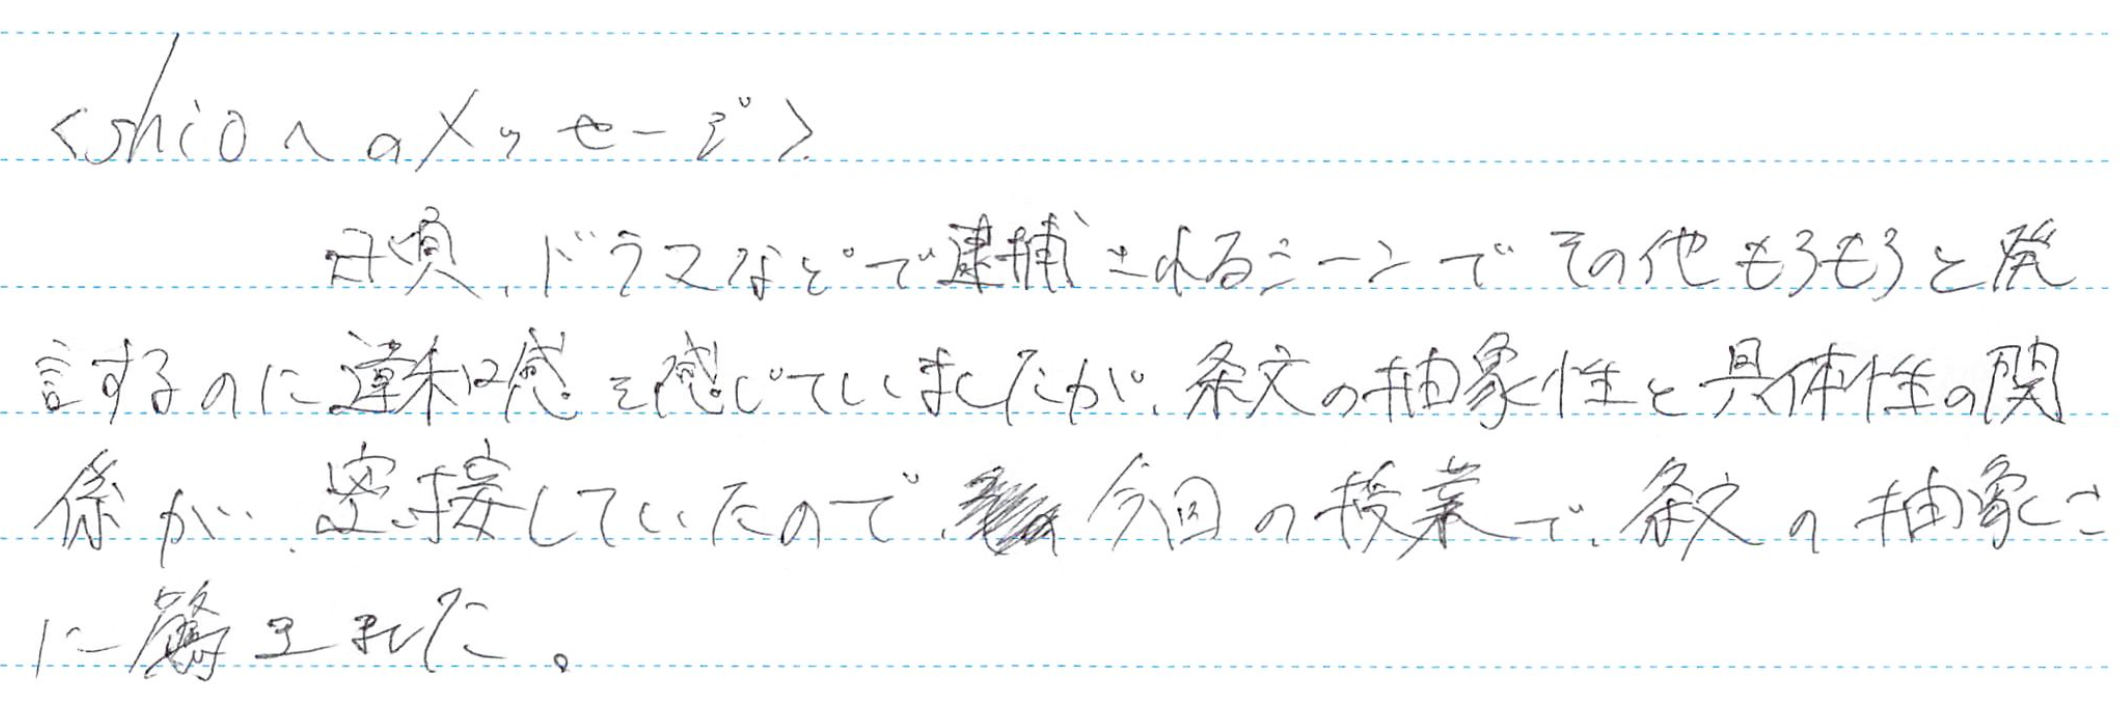 <shioへのメッセージ>
日頃、ドラマなどで逮捕されるシーンでその他もろもろと発
言するのに違和感を感じていましたが、条文の抽象性と具体性の関
係が、密接していたので、今回の授業で、条文の抽象さ
に驚きました。